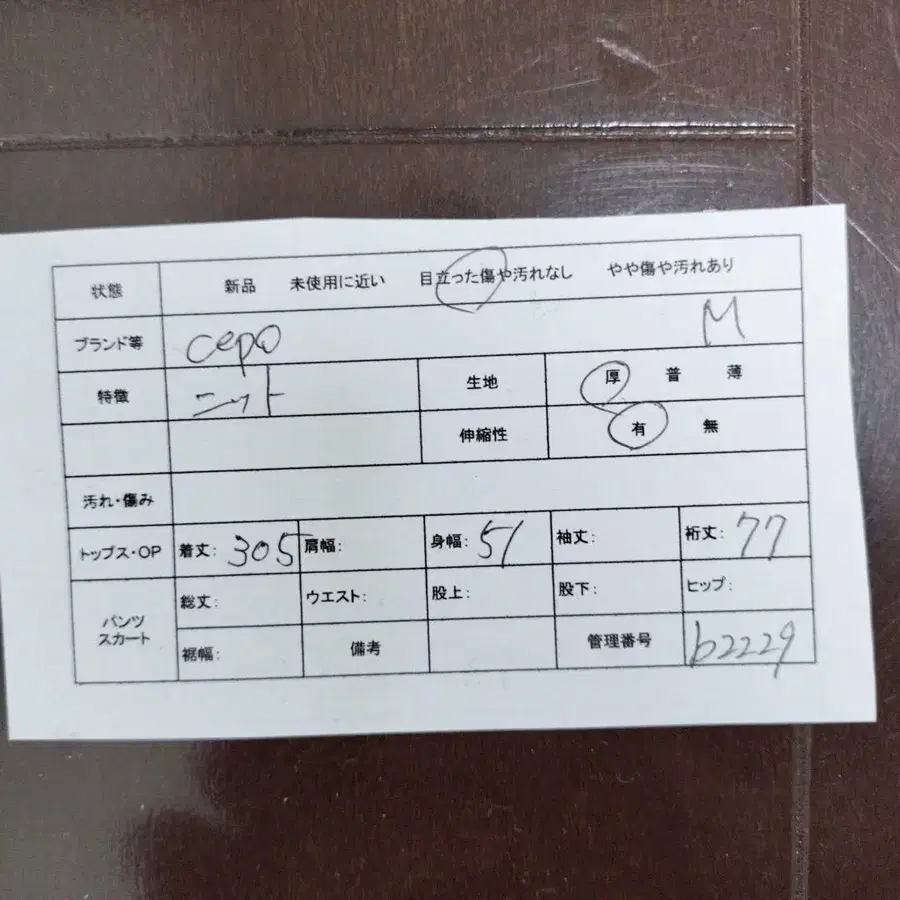 状態 新品 未使用に近い 目立った傷や汚れなし やや傷や汚れあり
ブランド等 cepo M
特徴 ニット 生地 厚 普 薄
伸縮性 有 無
汚れ・傷み
トップス・OP 着丈: 305 肩幅: 身幅: 51 袖丈: 裄丈: 77
パンツ スカート 総丈: ウエスト: 股上: 股下: ヒップ:
裾幅: 備考 管理番号 b2229